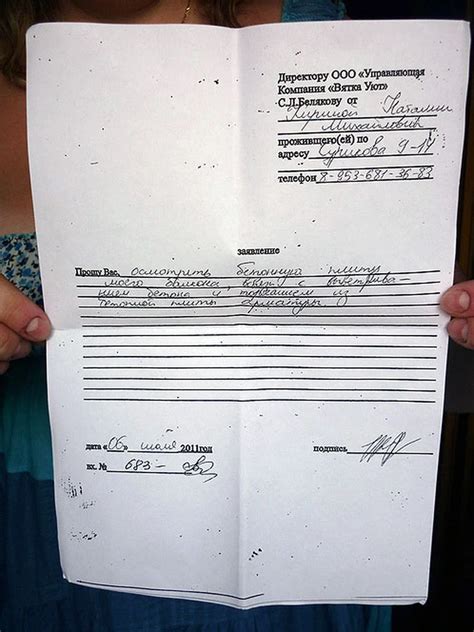 Директору ООО «Управляющая
Компания «Вятка Уют»
С.Л.Белякову от
Наталии
Михайловны
прожившего(ей) по
адресу Сурикова 9-14
телефон 8-953-681-36-83
заявление
Прошу Вас, осмотреть бетонную плиту
моего балкона, связи с выветрива-
нием бетона и торчащим из
бетонной плиты арматуры.
дата «06» июля 2011год
подпись
вх. № 683-